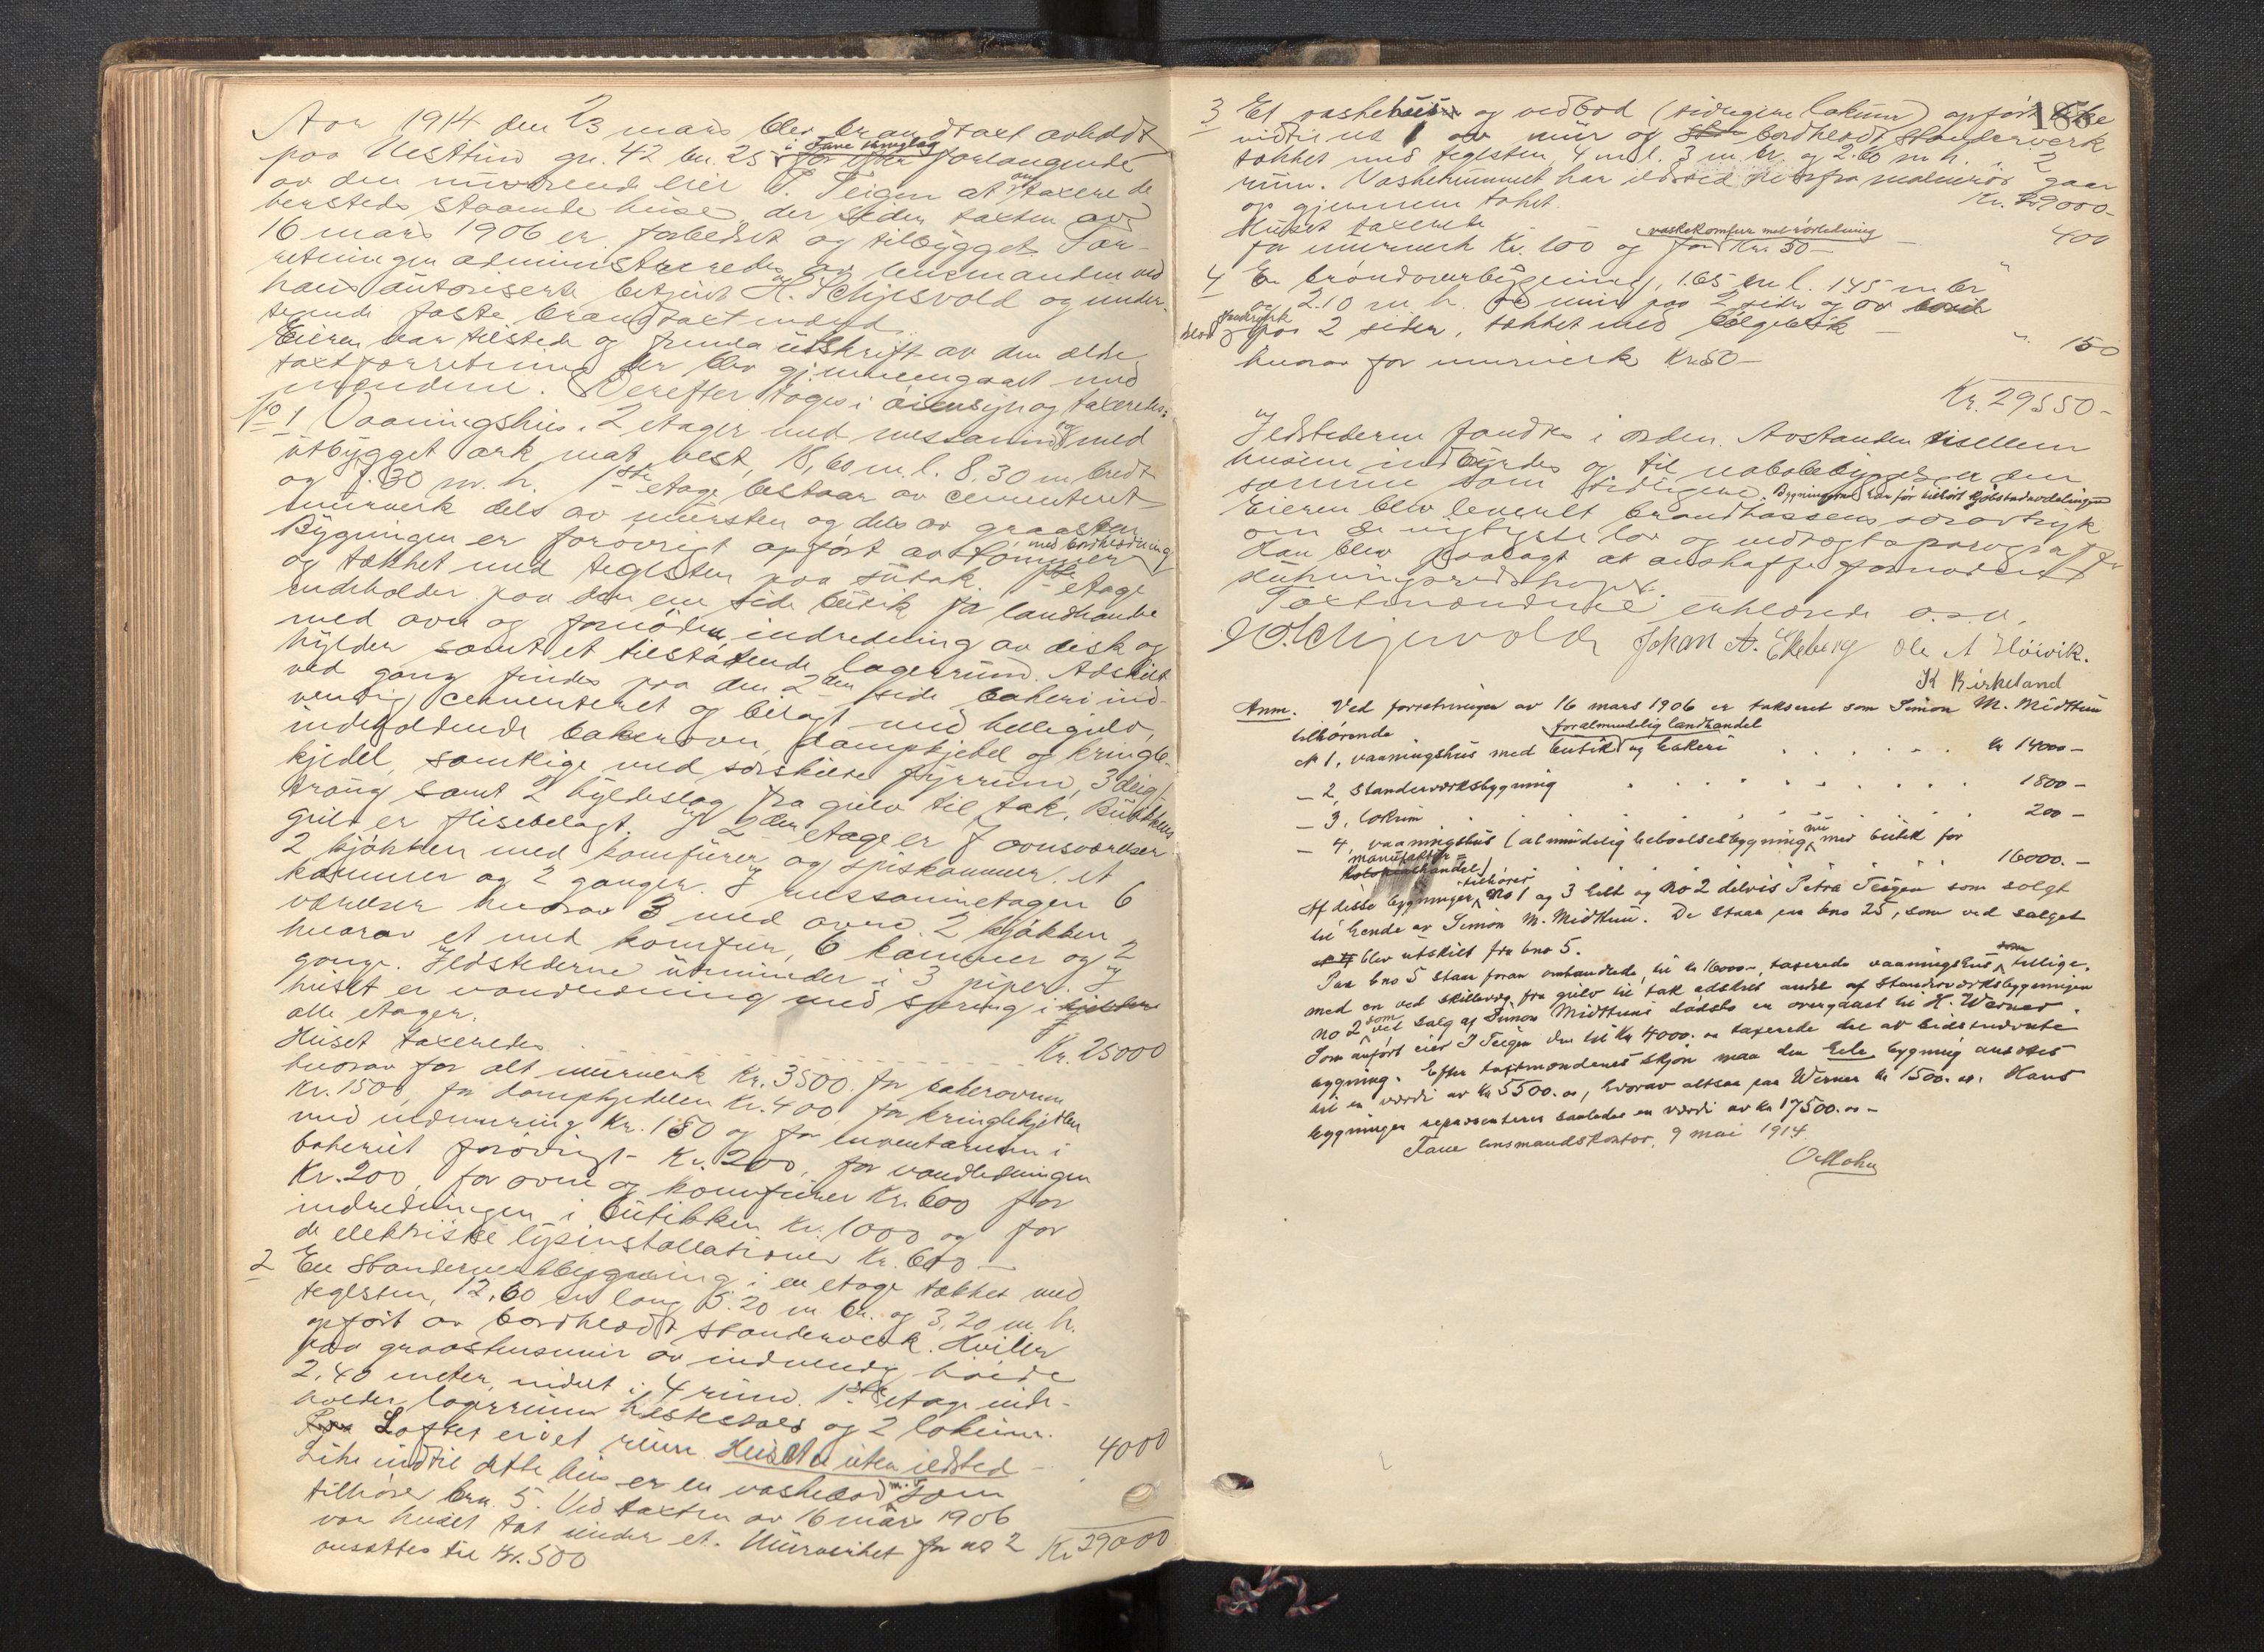 Aar 1914 den 23 mars blev brandtaxt avholdt
paa Nesttun gr. 42 bn. 25 i Fane tinglag forlangende
av den nuværende eier P. Teigen at omtaxere de
hersteds staaende huse, der siden taxten av
16 mars 1906 er forbedret og tilbygget. For-
retningen administreredes av lensmanden ved
hans autoriserte betjent H. Schjesvold og under-
tegnede faste brandtaxtmænd.
Eieren var tilstede og fremla utskrift av den ældre
taxtforretning der blev gjennemgaaet med
mændene. Derefter toges i øiensyn og taxeredes:
No 1 Vaaningshus. 2 etager med messanin og med
utbygget ark mot vest, 18,60 m. l. 8.30 m bredt
og 7.30 m. h. 1ste etage bestaar av cementeret
murverk dels av mursten og dels av graasten
Bygningen er forøvrigt opført av tømmer med bordklædning
og tækket med teglsten paa sutak. 1ste etage
indeholder paa den ene side butik for landhandel
med ovn og fornøden indredning av disk og
hylder samt et tilstøtende lagerrum. Adskilt
ved gang findes paa den 2den side bakeri ind-
vendig cementeret og belagt med hellegulv,
indeholdende bakerovn, dampkjedel og kringle-
kjedel, samtlige med særskilte fyrrum, 3 deig-
traug samt 2 hyldeslag fra gulv til tak. Butikkens
gulv er flisebelagt. I 2den etage er 7 ovnsværelser
2 kjøkken med komfurer og spiskammer, et
kammer og 2 ganger. I messaninetagen 6
værelser hvorav 3 med ovne. 2 kjøkken
hvorav et med komfur, 6 kammer og 2
gange. Ildstederne utmunder i 3 piper. I
huset er vandledning med spring i
alle etager.
Huset taxeredes Kr. 25000
hvorav for alt murverk Kr. 3500. for bakerovnen
Kr. 1500, for dampkjedelen Kr. 400, for kringlekjedlen
med indmuring Kr. 150 og for inventarium i
bakeriet forøvrigt Kr. 200, for vandledningen
Kr. 200, for ovne og komfurer Kr. 600 for
indredningen i butikken Kr. 1000 og for
de elektriske lysinstallationer Kr. 600 —
2 En Standerverkbygning i en etage tækket med
teglsten, 12,60 m lang 5.20 m br. og 3,20 m h.
opført av bordklædt standerverk. Hviler
paa graastensmur av indvendig høide
2,40 meter, indelt i 4 rum. 1ste etage inde-
holder lagerrum hestestald og 2 lokum.
Loftet er et rum. Huset er uten ildsted — 4000
Like indtil dette hus er en vaskebod m.v. som
tilhører brn. 5. Ved taxten av 16 mars 1906
var huset tat under et. Murverket for no 2
ansattes til Kr. 500
Kr 29000
185
3 Et vaskehus og vedbod (tidligere lokum) opført like
indtil no 1 av mur og bordklædt standerverk
tækket med teglsten, 4 m l. 3 m br og 2.60 m h. i 2
rum. Vaskerummet har ildsted hvorfra malmrør gaar
op gjennem taket. Kr. 29000-
Huset taxeredes — 400
for murverk Kr. 100 og for vaskekomfur med rørledning Kr. 50 —
4 En brøndoverbygning, 1.65 m l. 1.45 m br "
og 2.10 m h. av mur paa 2 sider og av
standerverk paa 2 sider, tækket med bølgeblik — " 150
hvorav for murverk Kr 50 —
Kr. 29550-
Ildstederne fandtes i orden. Avstanden imellem
husene indbyrdes og til nabobebyggelser den
samme som tidligere. Bygningerne har før tilhørt Kjøbstadavdelingen
Eieren blev leveret brandkassens særavtryk
om de vigtigste lov og vedtægtsparagrafer
Han blev paalagt at anskaffe fornødent
slukningsredskaper.
Taxtmændene erklærede o.s.v.
H. Schjesvold Johan A. Ekeberg Ole A Høivik.
K Birkeland
Anm. Ved forretningen av 16 mars 1906 er takseret som Simon M. Midttun
tilhørende
№ 1, vaaningshus med butik for almindelig landhandel og bakeri . . . . . Kr 14000 —
— 2, Standerverksbygning . . . . . 1800 —
— 3, lokum . . . . . 200 —
— 4, vaaningshus (almindelig beboelsesbygning nu med butik for
manufaktur-
kolonialhandel) . . . . 16000. —
Af disse bygninger tilhører No 1 og 3 helt og No 2 delvis Petra Teigen som solgt
til hende av Simon M. Midttun. De staar paa bno 25, som ved salget
blev utskilt fra bno 5.
Paa bno 5 staar foran omhandlede, til kr 16000-, taxerede vaaningshus som tillige-
med en ved skillevæg fra gulv til tak adskilt andel af Standerværksbygningen
no 2 som ved salg af Simon Midttuns dødsbo er overgaaet til H. Werner.
Som anført eier P Teigen den til Kr 4000.00 taxerede del av sidstnævnte
bygning. Efter taxtmændenes skjøn maa den hele bygning ansættes
til en værdi av Kr 5500.00, hvorav altsaa paa Werner Kr 1500.00. Hans
bygninger repræsenterer saaledes en værdi av Kr 17500.00 —
Fane lensmandskontor, 9 mai 1914.